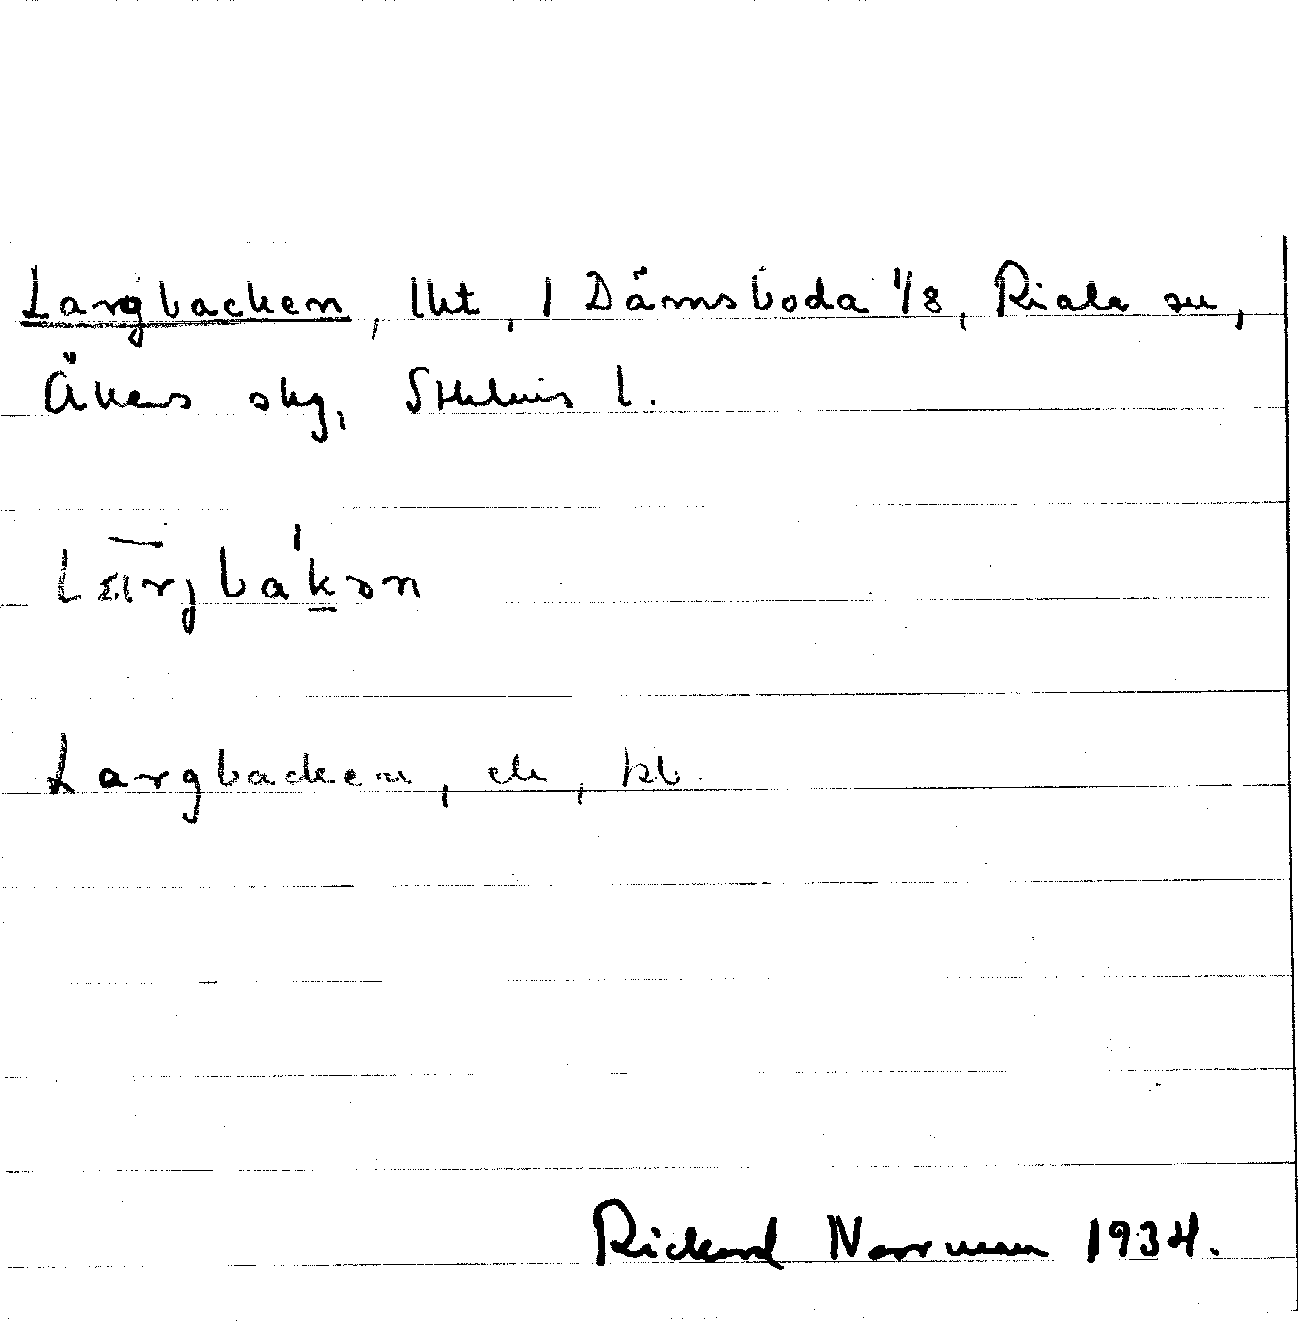 Largbacken, lht, 1 Därnsboda 1/8, Riala sn,
Åkers skg, Sthlms l.
Largbacken, ck, kb.
Rickard Norrman 1934.